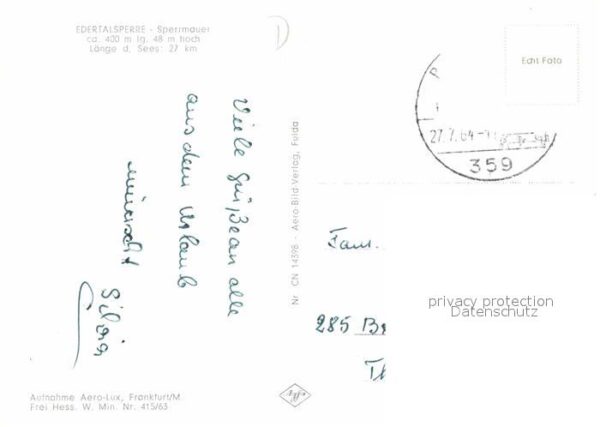 EDERTALSPERRE - Sperrmauer
ca. 400 m lg. 48 m hoch
Länge d. Sees: 27 km
Viele Grüße an alle
aus dem Urlaub
wünscht
Silvia
Nr. CN 14398 - Aero-Bild-Verlag, Fulda
Echt Foto
27.7.64
359
Fam.
285 Br
privacy protection
Datenschutz
Aufnahme Aero-Lux, Frankfurt/M
Frei Hess. W. Min. Nr. 415/63